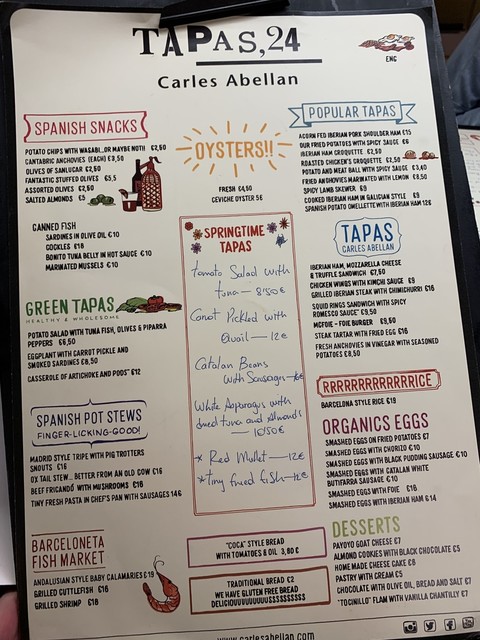 TAPAS,24
Carles Abellan
ENG
SPANISH SNACKS
POTATO CHIPS WITH WASABI...OR MAYBE NOT €2,50
CANTABRIC ANCHOVIES (EACH) €3,50
OLIVES OF SANLUCAR €2,60
FANTASTIC STUFFED OLIVES €5,5
ASSORTED OLIVES €2,50
SALTED ALMONDS €5
CANNED FISH
SARDINES IN OLIVE OIL €10
COCKLES €18
BONITO TUNA BELLY IN HOT SAUCE €10
MARINATED MUSSELS €10
GREEN TAPAS
HEALTHY & WHOLESOME
POTATO SALAD WITH TUNA FISH, OLIVES & PIPARRA
PEPPERS €6,50
EGGPLANT WITH CARROT PICKLE AND
SMOKED SARDINES €8,50
CASSEROLE OF ARTICHOKE AND PODS €12
SPANISH POT STEWS
FINGER-LICKING-GOOD!
MADRID STYLE TRIPE WITH PIG TROTTERS
SNOUTS €16
OX TAIL STEW... BETTER FROM AN OLD COW €16
BEEF FRICANDÓ WITH MUSHROOMS €16
TINY FRESH PASTA IN CHEF'S PAN WITH SAUSAGES 14€
BARCELONETA
FISH MARKET
ANDALUSIAN STYLE BABY CALAMARIES €19
GRILLED CUTTLEFISH €16
GRILLED SHRIMP €18
OYSTERS!!
FRESH €4,50
CEVICHE OYSTER 5€
SPRINGTIME
TAPAS
tomato Salad with
tuna — 8'50€
Carrot Pickled with
Quail — 12€
Catalan Beans
with Sausage —
White Asparagus with
dried tuna and Almonds
— 10'50€
* Red Mullet — 12€
* tiny fried fish — 12€
"COCA" STYLE BREAD
WITH TOMATOES & OIL 3,80 €
TRADITIONAL BREAD €2
WE HAVE GLUTEN FREE BREAD
www.carlesabellan.com
POPULAR TAPAS
ACORN FED IBERIAN PORK SHOULDER HAM €15
OUR FRIED POTATOES WITH SPICY SAUCE €6
IBERIAN HAM CROQUETTE €2,50
ROASTED CHICKEN'S CROQUETTE €2,50
POTATO AND MEAT BALL WITH SPICY SAUCE €3,40
FRIED ANCHOVIES MARINATED WITH LEMON €8,50
SPICY LAMB SKEWER €9
COOKED IBERIAN HAM IN GALICIAN STYLE €9
SPANISH POTATO OMELLETTE WITH IBERIAN HAM 12€
TAPAS
CARLES ABELLAN
IBERIAN HAM, MOZZARELLA CHEESE
& TRUFFLE SANDWICH €7,60
CHICKEN WINGS WITH KIMCHI SAUCE €9
GRILLED IBERIAN STEAK WITH CHIMICHURRI €16
SQUID RINGS SANDWICH WITH SPICY
ROMESCO SAUCE €9,50
MCFOIE - FOIE BURGER €9,60
STEAK TARTAR WITH FRIED EGG €16
FRESH ANCHOVIES IN VINEGAR WITH SEASONED
POTATOES €8,50
RRRRRRRRRRRRRICE
BARCELONA STYLE RICE €19
ORGANICS EGGS
SMASHED EGGS ON FRIED POTATOES €7
SMASHED EGGS WITH CHORIZO €10
SMASHED EGGS WITH BLACK PUDDING SAUSAGE €10
SMASHED EGGS WITH CATALAN WHITE
BUTIFARRA SAUSAGE €10
SMASHED EGGS WITH FOIE €16
SMASHED EGGS WITH IBERIAN HAM €14
DESSERTS
PAYOYO GOAT CHEESE €7
ALMOND COOKIES WITH BLACK CHOCOLATE €5
HOME MADE CHEESE CAKE €8
PASTRY WITH CREAM €5
CHOCOLATE WITH OLIVE OIL, BREAD AND SALT €7
"TOCINILLO" FLAM WITH VANILLA CHANTILLY €7